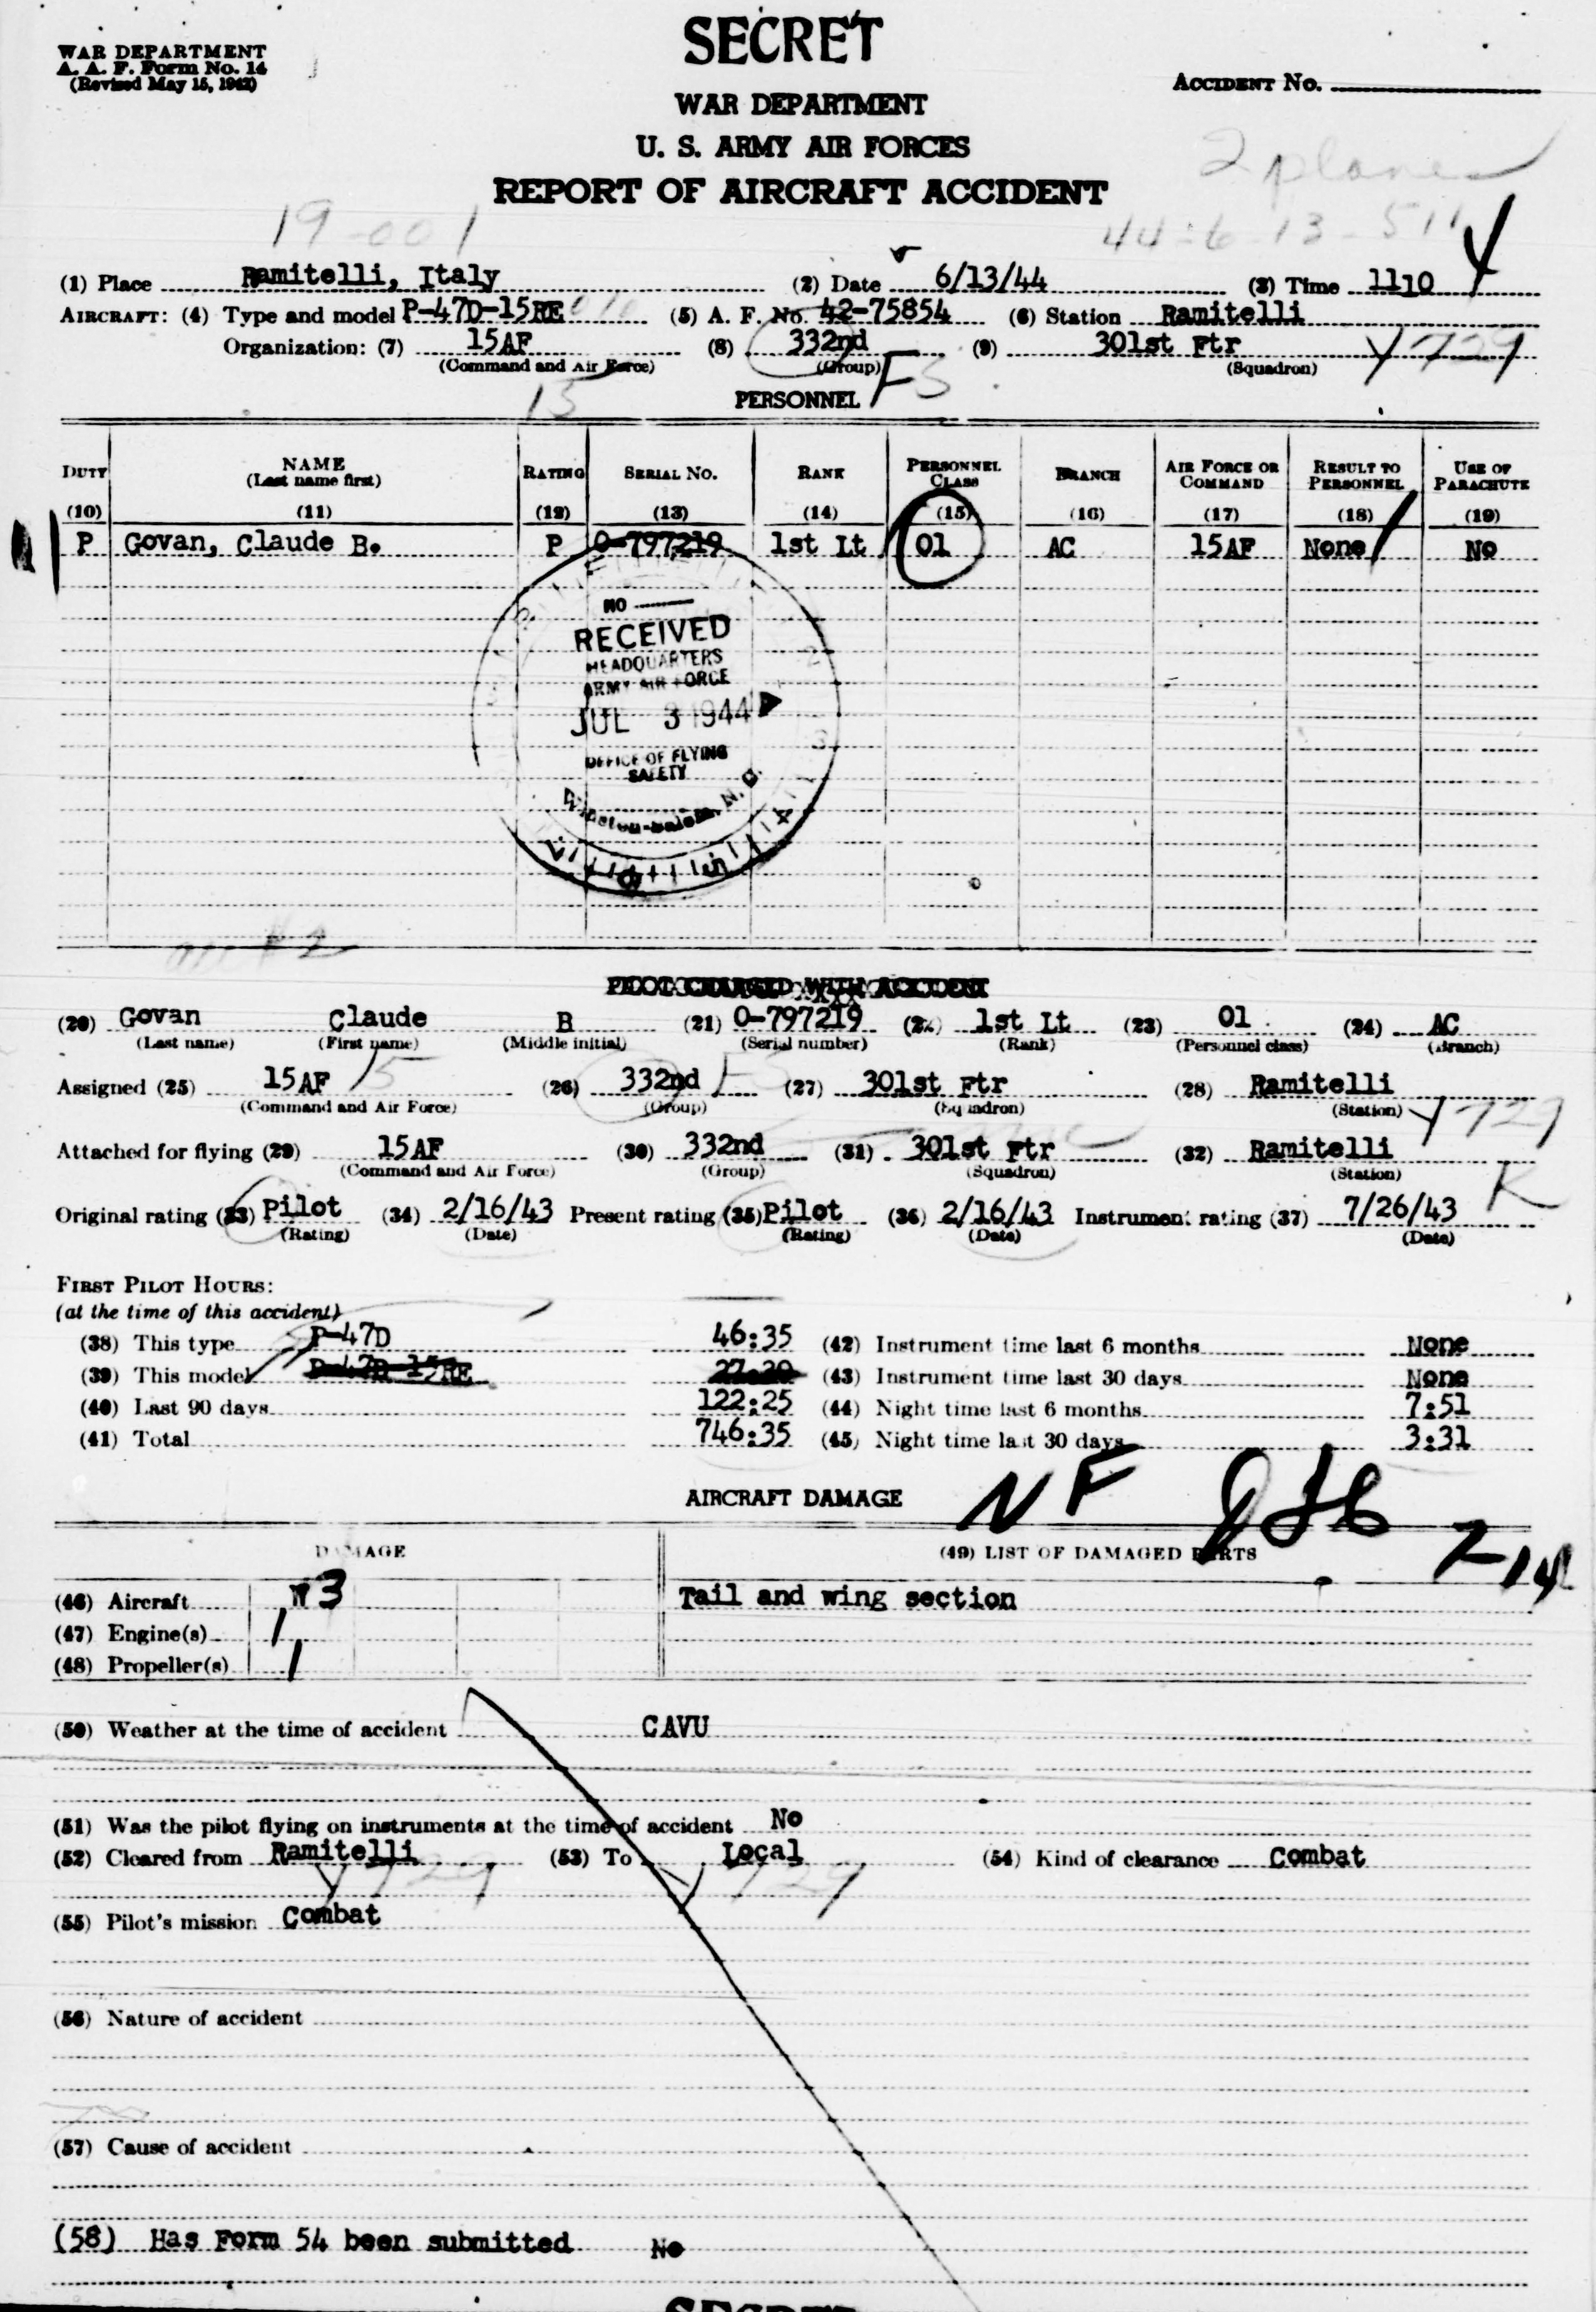 SECRET
WAR DEPARTMENT
A. A. F. Form No. 14
(Revised May 15, 1942)
ACCIDENT NO.
WAR DEPARTMENT
U. S. ARMY AIR FORCES
REPORT OF AIRCRAFT ACCIDENT
2 planes
19-001
44-6-13-511
(1) Place Ramitelli, Italy (2) Date 6/13/44 (3) Time 1110
AIRCRAFT: (4) Type and model P-47D-15RE (5) A. F. No. 42-75854 (6) Station Ramitelli
Organization: (7) 15AF (8) 332nd (9) 301st Ftr Y729
(Command and Air Force) (Group) (Squadron)
15 PERSONNEL F3
DUTY NAME (Last name first) RATING SERIAL NO. RANK PERSONNEL CLASS BRANCH AIR FORCE OR COMMAND RESULT TO PERSONNEL USE OF PARACHUTE
(10) (11) (12) (13) (14) (15) (16) (17) (18) (19)
P Govan, Claude B. P O-797219 1st Lt 01 AC 15AF None No
NO
RECEIVED
HEADQUARTERS
ARMY AIR FORCE
JUL 3 1944
OFFICE OF FLYING
SAFETY
Winston-Salem, N. C.
#2
PILOT CHARGED WITH ACCIDENT
(20) Govan Claude B (21) O-797219 (22) 1st Lt (23) 01 (24) AC
(Last name) (First name) (Middle initial) (Serial number) (Rank) (Personnel class) (Branch)
Assigned (25) 15AF 15 (26) 332nd F3 (27) 301st Ftr (28) Ramitelli
(Command and Air Force) (Group) (Squadron) (Station) Y729
Attached for flying (29) 15AF (30) 332nd (31) 301st Ftr (32) Ramitelli
(Command and Air Force) (Group) (Squadron) (Station)
K
Original rating (33) Pilot (34) 2/16/43 Present rating (35) Pilot (36) 2/16/43 Instrument rating (37) 7/26/43
(Rating) (Date) (Rating) (Date) (Date)
FIRST PILOT HOURS:
(at the time of this accident)
(38) This type P-47D 46:35 (42) Instrument time last 6 months None
(39) This model P-47D-15RE 27:20 (43) Instrument time last 30 days None
(40) Last 90 days 122:25 (44) Night time last 6 months 7:51
(41) Total 746:35 (45) Night time last 30 days 3:31
AIRCRAFT DAMAGE NF
DAMAGE (49) LIST OF DAMAGED PARTS 7-14
(46) Aircraft 3 Tail and wing section
(47) Engine(s) 1
(48) Propeller(s) 1
(50) Weather at the time of accident CAVU
(51) Was the pilot flying on instruments at the time of accident No
(52) Cleared from Ramitelli (53) To Local (54) Kind of clearance Combat
Y729 Y729
(55) Pilot's mission Combat
(56) Nature of accident
(57) Cause of accident
(58) Has Form 54 been submitted No
SECRET